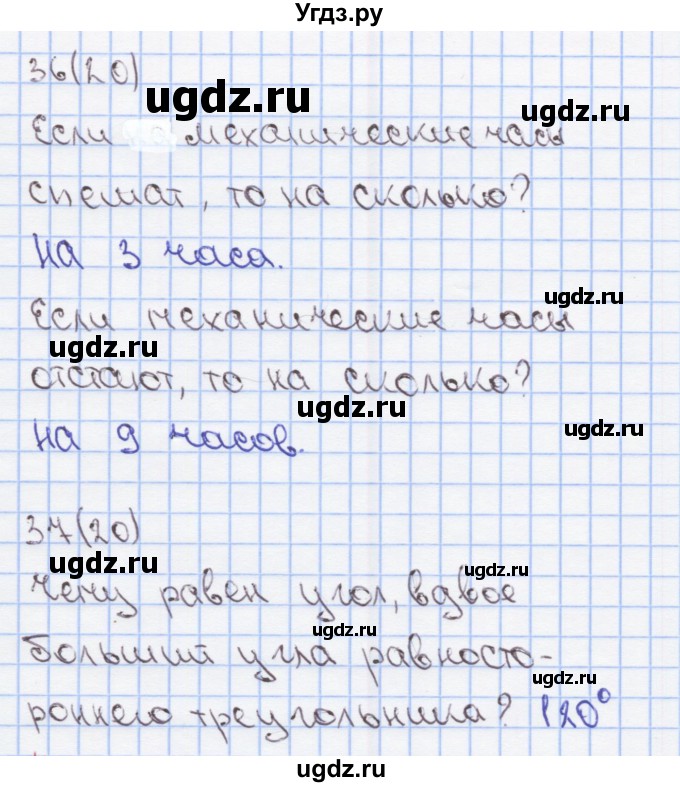 Угдз.ру
36(20)
ugdz.ru
ugdz.ru
Если механические часы
спешат, то на сколько?
на 3 часа.
ugdz.ru
Если механические часы
ugdz.ru
отстают, то на сколько?
ugdz.ru
ugdz.ru
на 9 часов.
37(20)
ugdz.ru
ugdz.ru
Чему равен угол, вдвое
ugdz.ru
больший угла равносто-
ugdz.ru
роннего треугольника? 120°
ugdz.ru
ugdz.ru